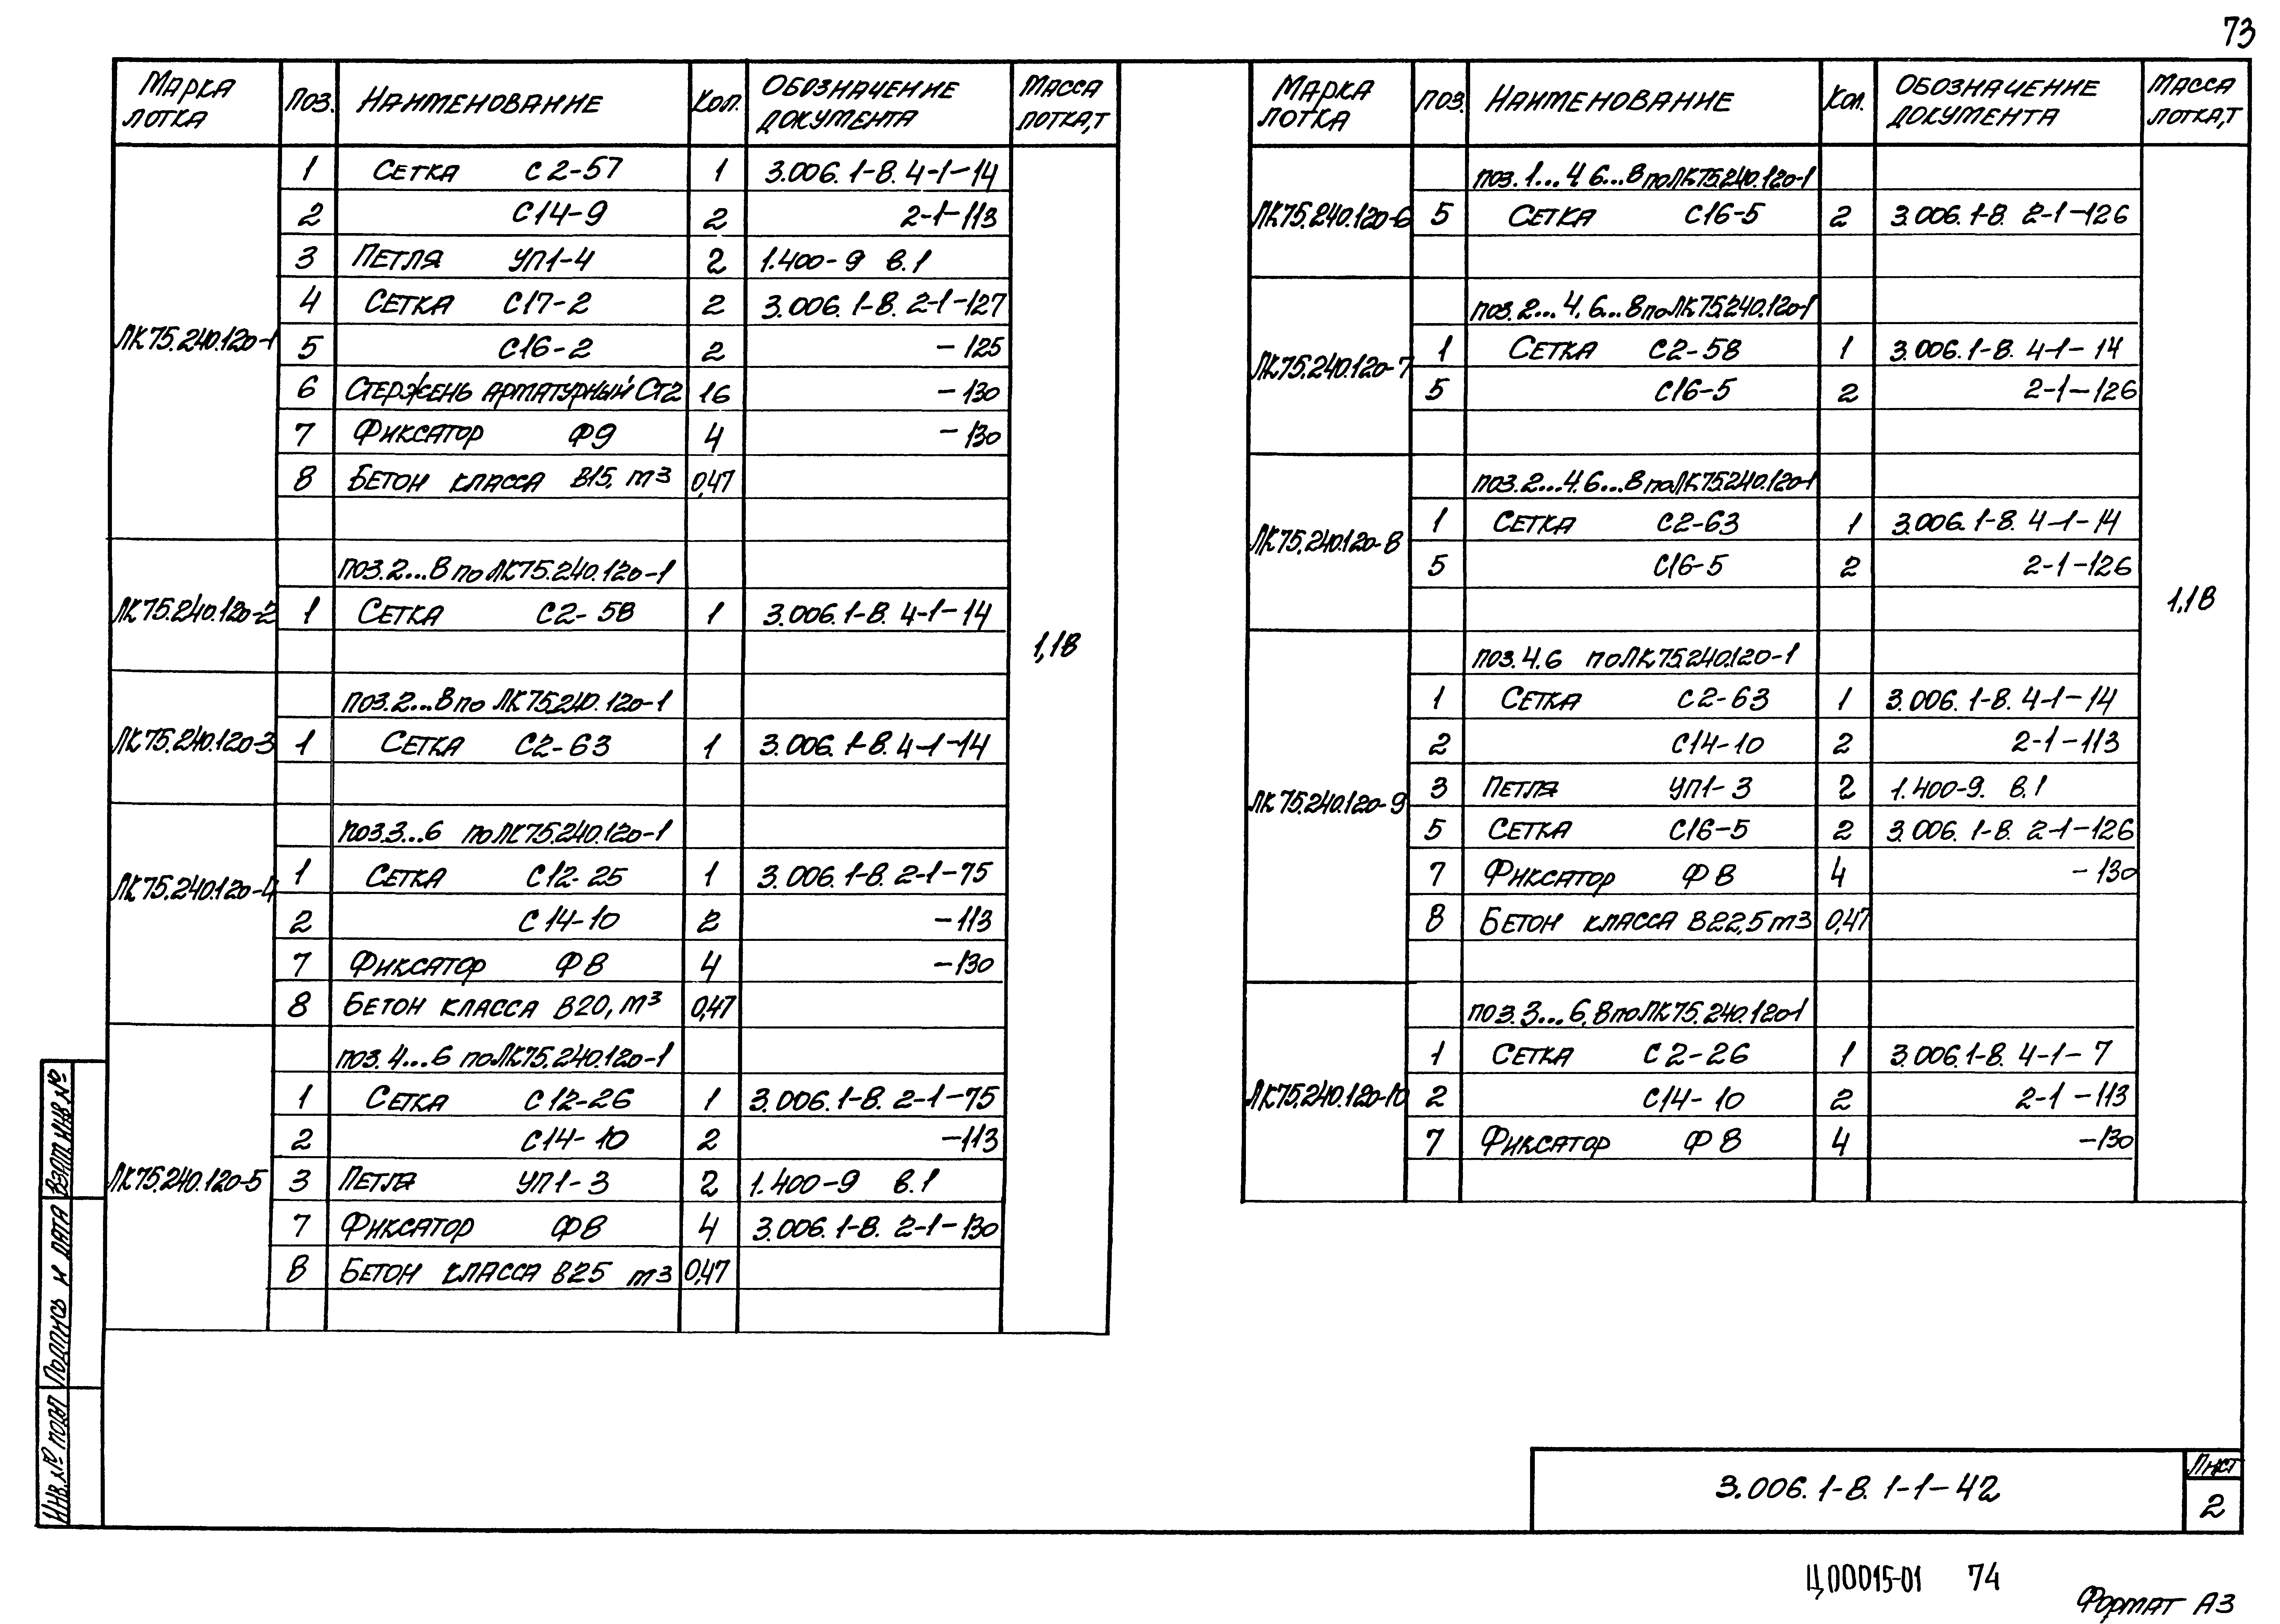 73
Марка лотка | Поз. | Наименование | Кол. | Обозначение документа | Масса лотка, т
ЛК75.240.120-1
1 Сетка С2-57 1 3.006.1-8. 4-1-14
2 С14-9 2 2-1-113
3 Петля УП1-4 2 1.400-9 в.1
4 Сетка С17-2 2 3.006.1-8. 2-1-127
5 С16-2 2 -125
6 Стержень арматурный Ст2 16 -130
7 Фиксатор Ф9 4 -130
8 Бетон класса В15, м3 0,47
ЛК75.240.120-2
поз.2...8 по ЛК75.240.120-1
1 Сетка С2-58 1 3.006.1-8. 4-1-14
1,18
ЛК75.240.120-3
поз.2...8 по ЛК75.240.120-1
1 Сетка С2-63 1 3.006.1-8. 4-1-14
ЛК75.240.120-4
поз.3...6 по ЛК75.240.120-1
1 Сетка С12-25 1 3.006.1-8. 2-1-75
2 С14-10 2 -113
7 Фиксатор Ф8 4 -130
8 Бетон класса В20, м3 0,47
ЛК75.240.120-5
поз.4...6 по ЛК75.240.120-1
1 Сетка С12-26 1 3.006.1-8. 2-1-75
2 С14-10 2 -113
3 Петля УП1-3 2 1.400-9 в.1
7 Фиксатор Ф8 4 3.006.1-8. 2-1-130
8 Бетон класса В25 м3 0,47
Марка лотка | Поз. | Наименование | Кол. | Обозначение документа | Масса лотка, т
ЛК75.240.120-6
поз.1...4,6...8 по ЛК75.240.120-1
5 Сетка С16-5 2 3.006.1-8. 2-1-126
ЛК75.240.120-7
поз.2...4,6...8 по ЛК75.240.120-1
1 Сетка С2-58 1 3.006.1-8. 4-1-14
5 С16-5 2 2-1-126
ЛК75.240.120-8
поз.2...4,6...8 по ЛК75.240.120-1
1 Сетка С2-63 1 3.006.1-8. 4-1-14
5 С16-5 2 2-1-126
1,18
ЛК75.240.120-9
поз.4,6 по ЛК75.240.120-1
1 Сетка С2-63 1 3.006.1-8. 4-1-14
2 С14-10 2 2-1-113
3 Петля УП1-3 2 1.400-9. в.1
5 Сетка С16-5 2 3.006.1-8. 2-1-126
7 Фиксатор Ф8 4 -130
8 Бетон класса В22,5 м3 0,47
ЛК75.240.120-10
поз.3...6,8 по ЛК75.240.120-1
1 Сетка С2-26 1 3.006.1-8. 4-1-7
2 С14-10 2 2-1-113
7 Фиксатор Ф8 4 -130
Взам инв №
Подпись и дата
Инв.№ подл
3.006.1-8.1-1-42
Лист
2
Ц00015-01 74
Формат А3